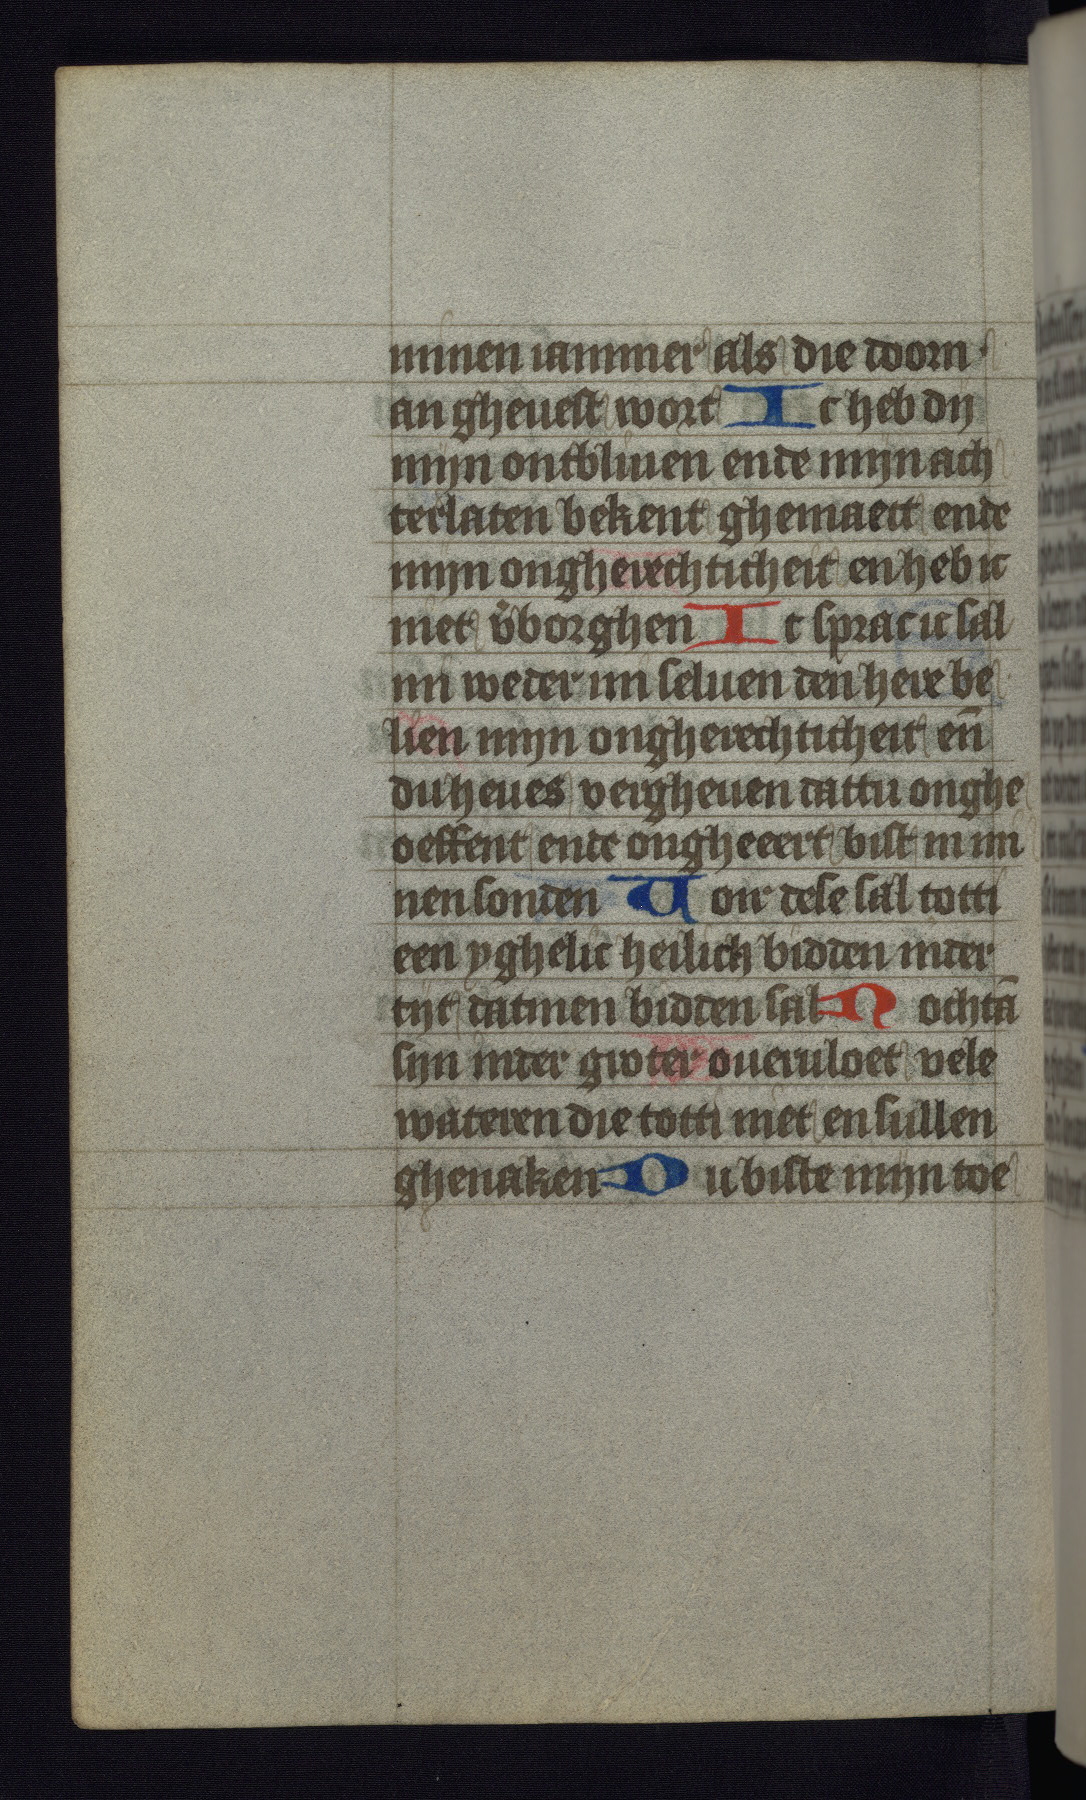 minen iammer als die doorn
an ghevest wort Ic heb dy
mijn ontbliven ende mijn ach
terlaten bekent ghemaect ende
mijn ongherechticheit en heb ic
niet v̉borghen Ic sprac ic sal
mi weder mi seluen den here be
lien mijn ongherechticheit en̄
du heues vergheuen dattu onghe
oeffent ende ongheeert bist in mi
nen sonden Uoir dese sal totti
een yghelic heilich bidden inder
tijt datmen bidden sal Nochtā
sijn inder groter oueruloet vele
wateren die totti niet en sullen
ghenaken Du biste mijn toe